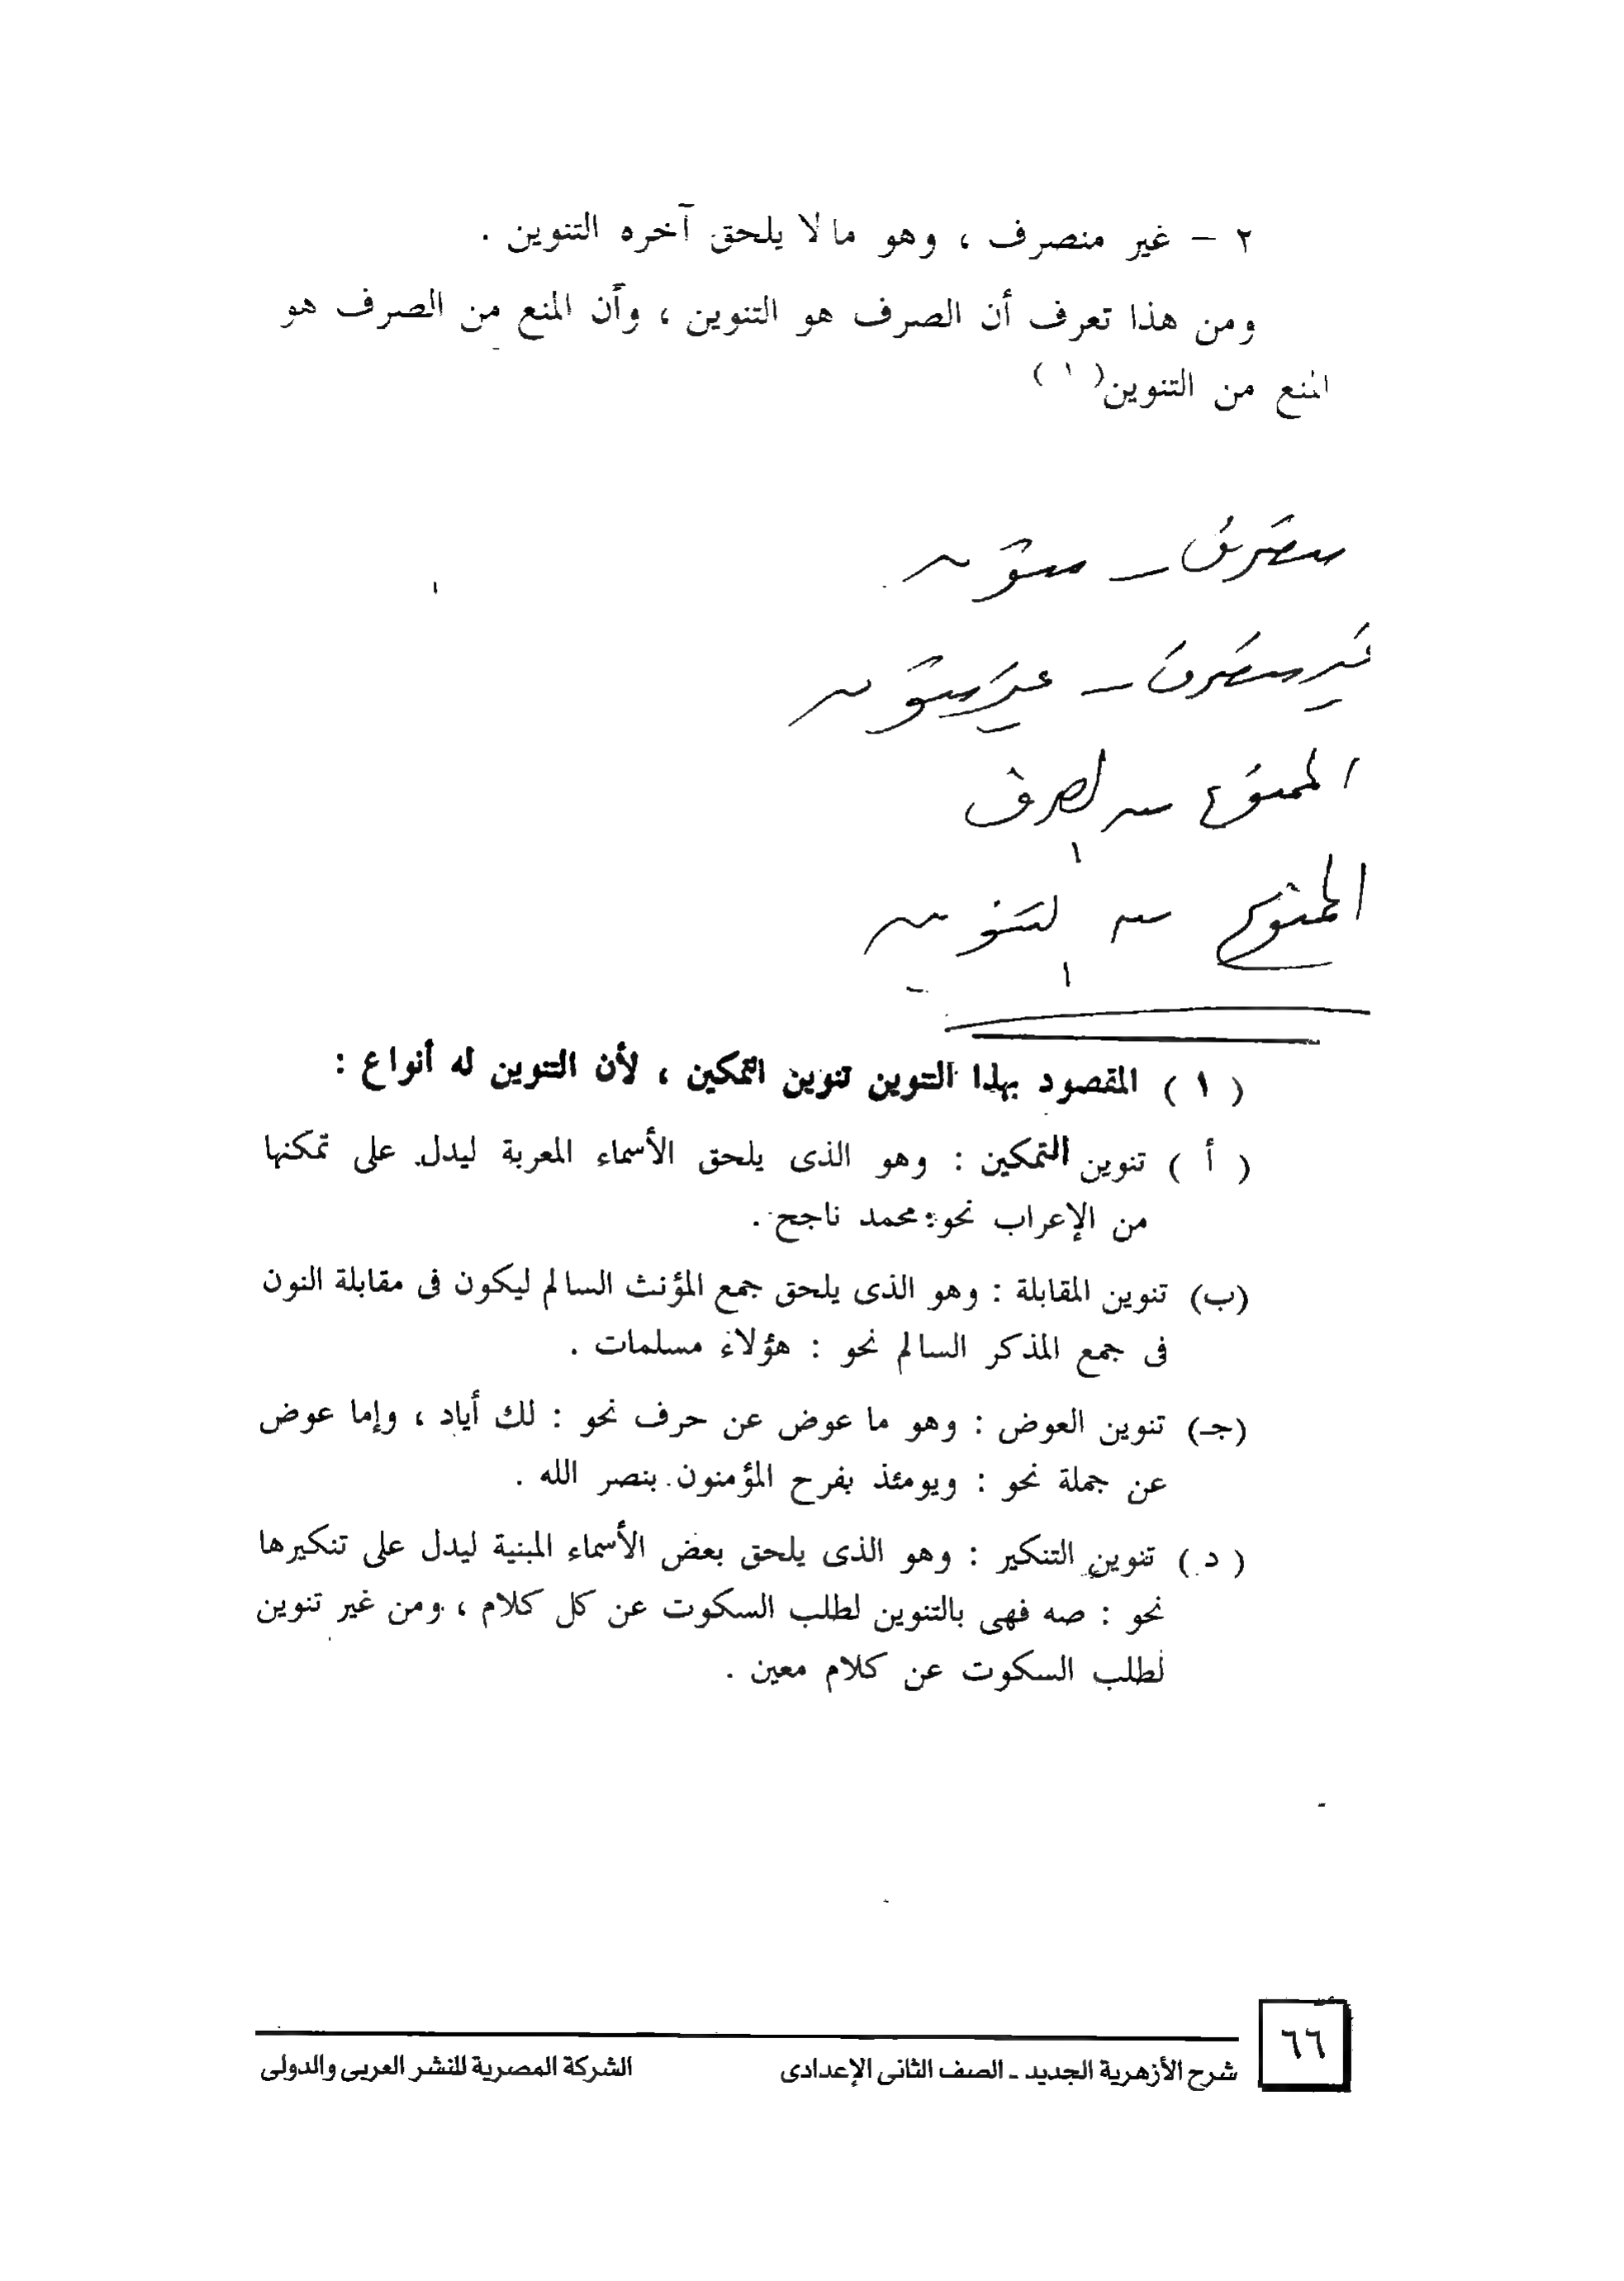 ٢ – غير منصرف ، وهو ما لا يلحق آخره التنوين .
ومن هذا تعرف أن الصرف هو التنوين ، وأن المنع من الصرف هو
المنع من التنوين(١)
منصرف – منون
غير منصرف – غير منون
الممنوع من الصرف
الممنوع من التنوين
( ١ ) المقصود بهذا التنوين تنوين التمكين ، لأن التنوين له أنواع :
( أ ) تنوين التمكين : وهو الذى يلحق الأسماء المعربة ليدل على تمكنها
من الإعراب نحو : محمد ناجح .
(ب) تنوين المقابلة : وهو الذى يلحق جمع المؤنث السالم ليكون فى مقابلة النون
فى جمع المذكر السالم نحو : هؤلاء مسلمات .
(جـ) تنوين العوض : وهو ما عوض عن حرف نحو : لك أياد ، وإما عوض
عن جملة نحو : ويومئذ يفرح المؤمنون بنصر الله .
( د ) تنوين التنكير : وهو الذى يلحق بعض الأسماء المبنية ليدل على تنكيرها
نحو : صه فهى بالتنوين لطلب السكوت عن كل كلام ، ومن غير تنوين
لطلب السكوت عن كلام معين .
٦٦
شرح الأزهرية الجديد - الصف الثانى الإعدادى الشركة المصرية للنشر العربى والدولى